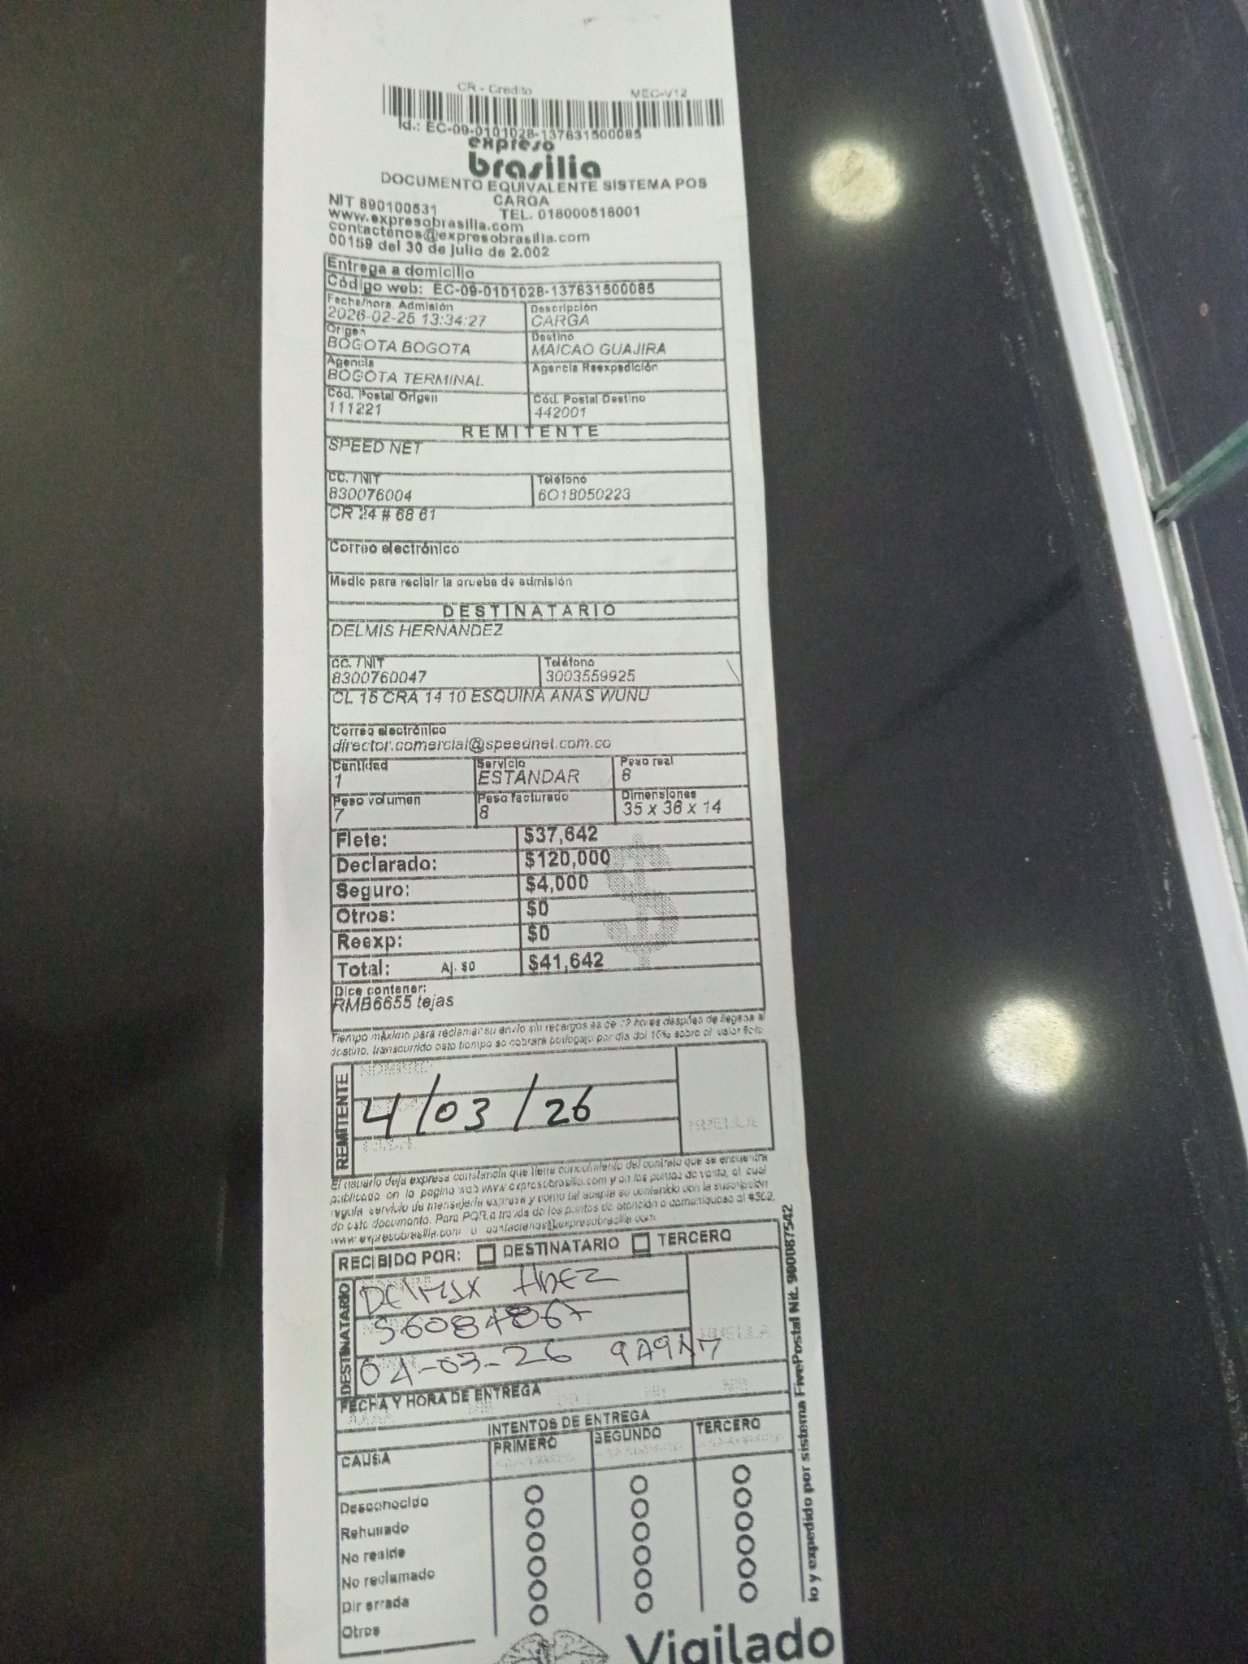 CR - Credito MEC-V12
Id.: EC-09-0101028-137631500085
expreso
brasilia
DOCUMENTO EQUIVALENTE SISTEMA POS
CARGA
NIT 890100531 TEL. 018000518001
www.expresobrasilia.com
contactenos@expresobrasilia.com
00159 del 30 de julio de 2.002
Entrega a domicilio
Código web: EC-09-0101028-137631500085
Fecha/hora Admisión Descripción
2026-02-25 13:34:27 CARGA
Origen Destino
BOGOTA BOGOTA MAICAO GUAJIRA
Agencia Agencia Reexpedición
BOGOTA TERMINAL
Cód. Postal Origen Cód. Postal Destino
111221 442001
REMITENTE
SPEED NET
CC. / NIT Teléfono
830076004 6018050223
CR 24 # 68 61
Correo electrónico
Medio para recibir la prueba de admisión
DESTINATARIO
DELMIS HERNANDEZ
CC. / NIT Teléfono
8300760047 3003559925
CL 15 CRA 14 10 ESQUINA ANAS WUNU
Correo electrónico
director.comercial@speednet.com.co
Cantidad Servicio Peso real
1 ESTANDAR 8
Peso volumen Peso facturado Dimensiones
7 8 35 x 36 x 14
Flete: $37,642
Declarado: $120,000
Seguro: $4,000
Otros: $0
Reexp: $0
Total: Aj. $0 $41,642
Dice contener:
RMB6655 tejas
Tiempo máximo para reclamar su envío sin recargos es de 72 horas después de llegada al
destino, transcurrido este tiempo se cobrara bodegaje por día del 10% sobre el valor flete
REMITENTE
4/03/26
HUELLA
El usuario deja expresa constancia que tiene conocimiento del contrato que se encuentra
publicado en la pagina web www.expresobrasilia.com y en los puntos de venta, el cual
regula servicio de mensajería expresa y como tal acepta su contenido con la suscripción
de este documento. Para PQR a través de los puntos de atención o comuniquese al #302,
www.expresobrasilia.com o contactenos@expresobrasilia.com
RECIBIDO POR: DESTINATARIO TERCERO
DESTINATARIO
HDEZ
HUELLA
04-03-26
FECHA Y HORA DE ENTREGA
INTENTOS DE ENTREGA
CAUSA PRIMERO SEGUNDO TERCERO
Desconocido
Rehusado
No reside
No reclamado
Dir errada
Otros
io y expedido por sistema FivePostal Nit. 900087542
Vigilado